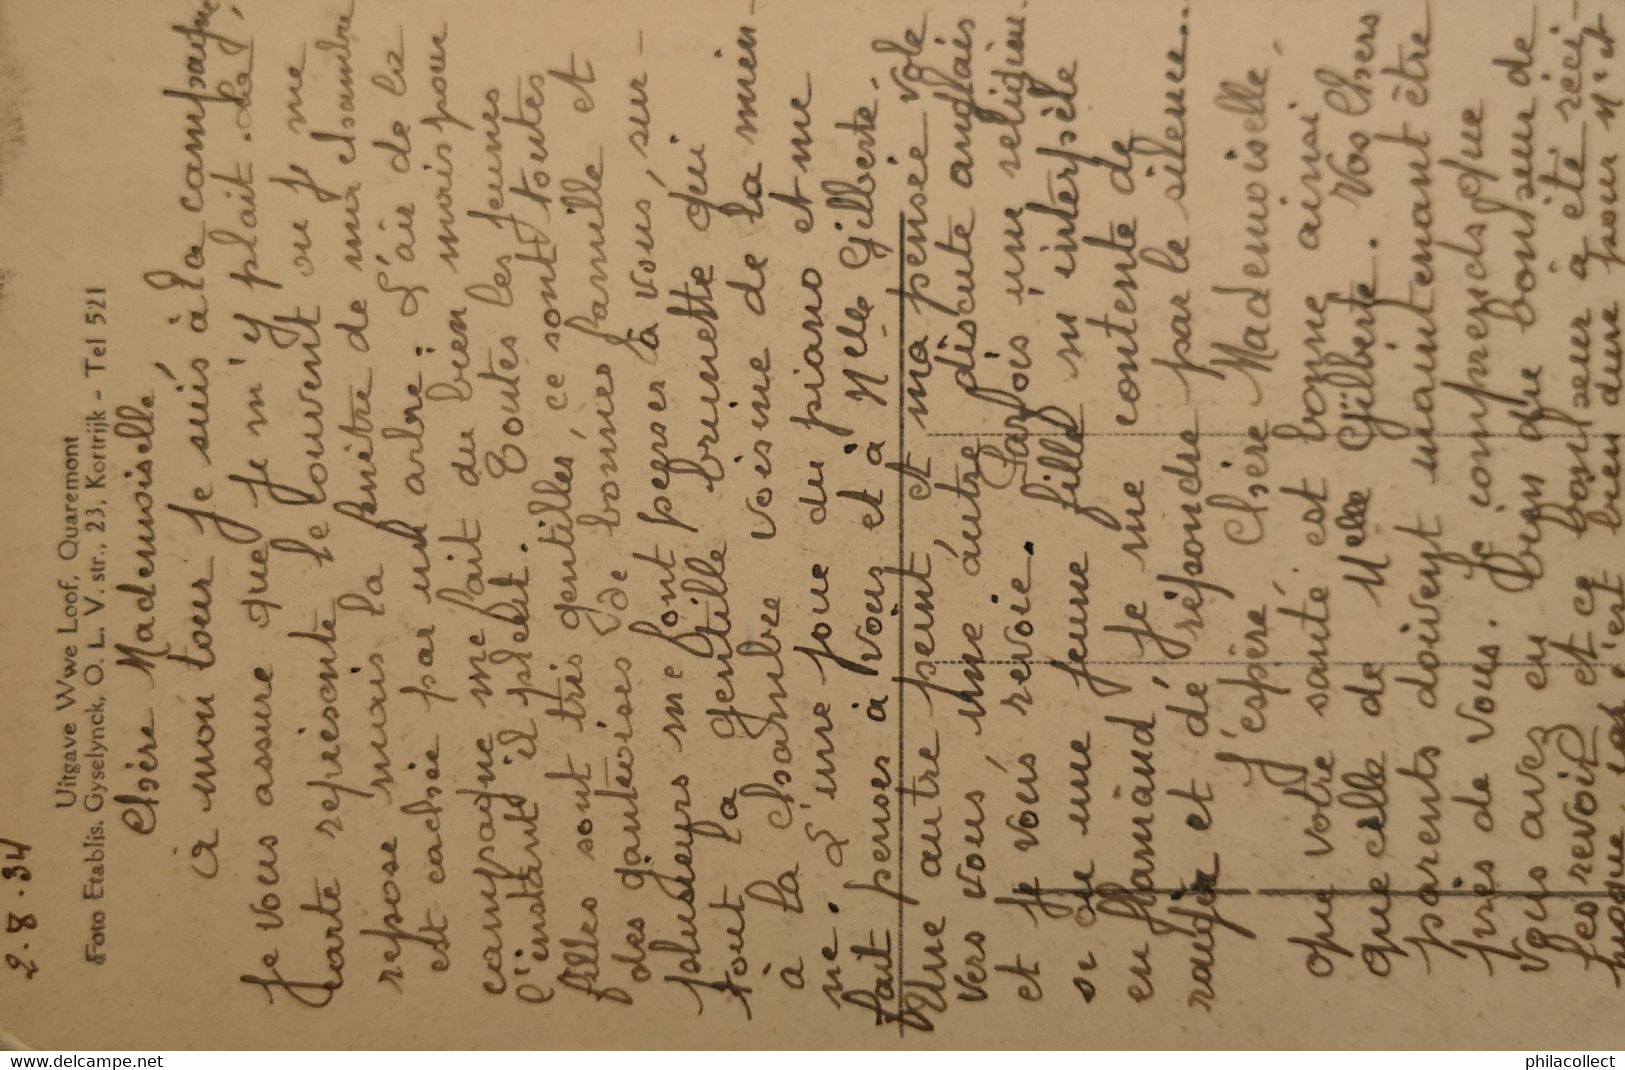 2.8.34
Uitgave Wwe Loof, Quaremont
Foto Etablis. Gyselynck, O. L. V. str., 23, Kortrijk - Tel 521
Chère Mademoiselle
à mon tour je suis à la campagne
je vous assure que je m'y plait. La
carte représente le couvent où je me
repose mais la fenêtre de ma chambre
est cachée par un arbre. L'air de la
campagne me fait du bien mais pour
l'instant il pleut. Toutes les jeunes
filles sont très gentilles, ce sont toutes
des gantoises de bonnes famille et
plusieurs me font penser à vous, sur-
tout la gentille brunette qui
à la chambre voisine de la mien-
ne. L'une joue du piano et me
fait penser à vous et à Melle Gilberte.
Une autre peint, et ma pensée vole
vers vous, une autre discute anglais
et je vous revoie. Parfois une religieu-
se ou une jeune fille m'interpèle
en flamand, je me contente de
rougir et de répondre par le silence...
J'espère Chère Mademoiselle,
que votre santé est bonne ainsi
que celle de Melle Gilberte. Vos Chers
parents doivent maintenant être
près de vous. Je comprends que
vous avez eu bien que bonheur de
les revoir et ce bonheur à été réci-
proque, car c'est bien dure pour Mr et